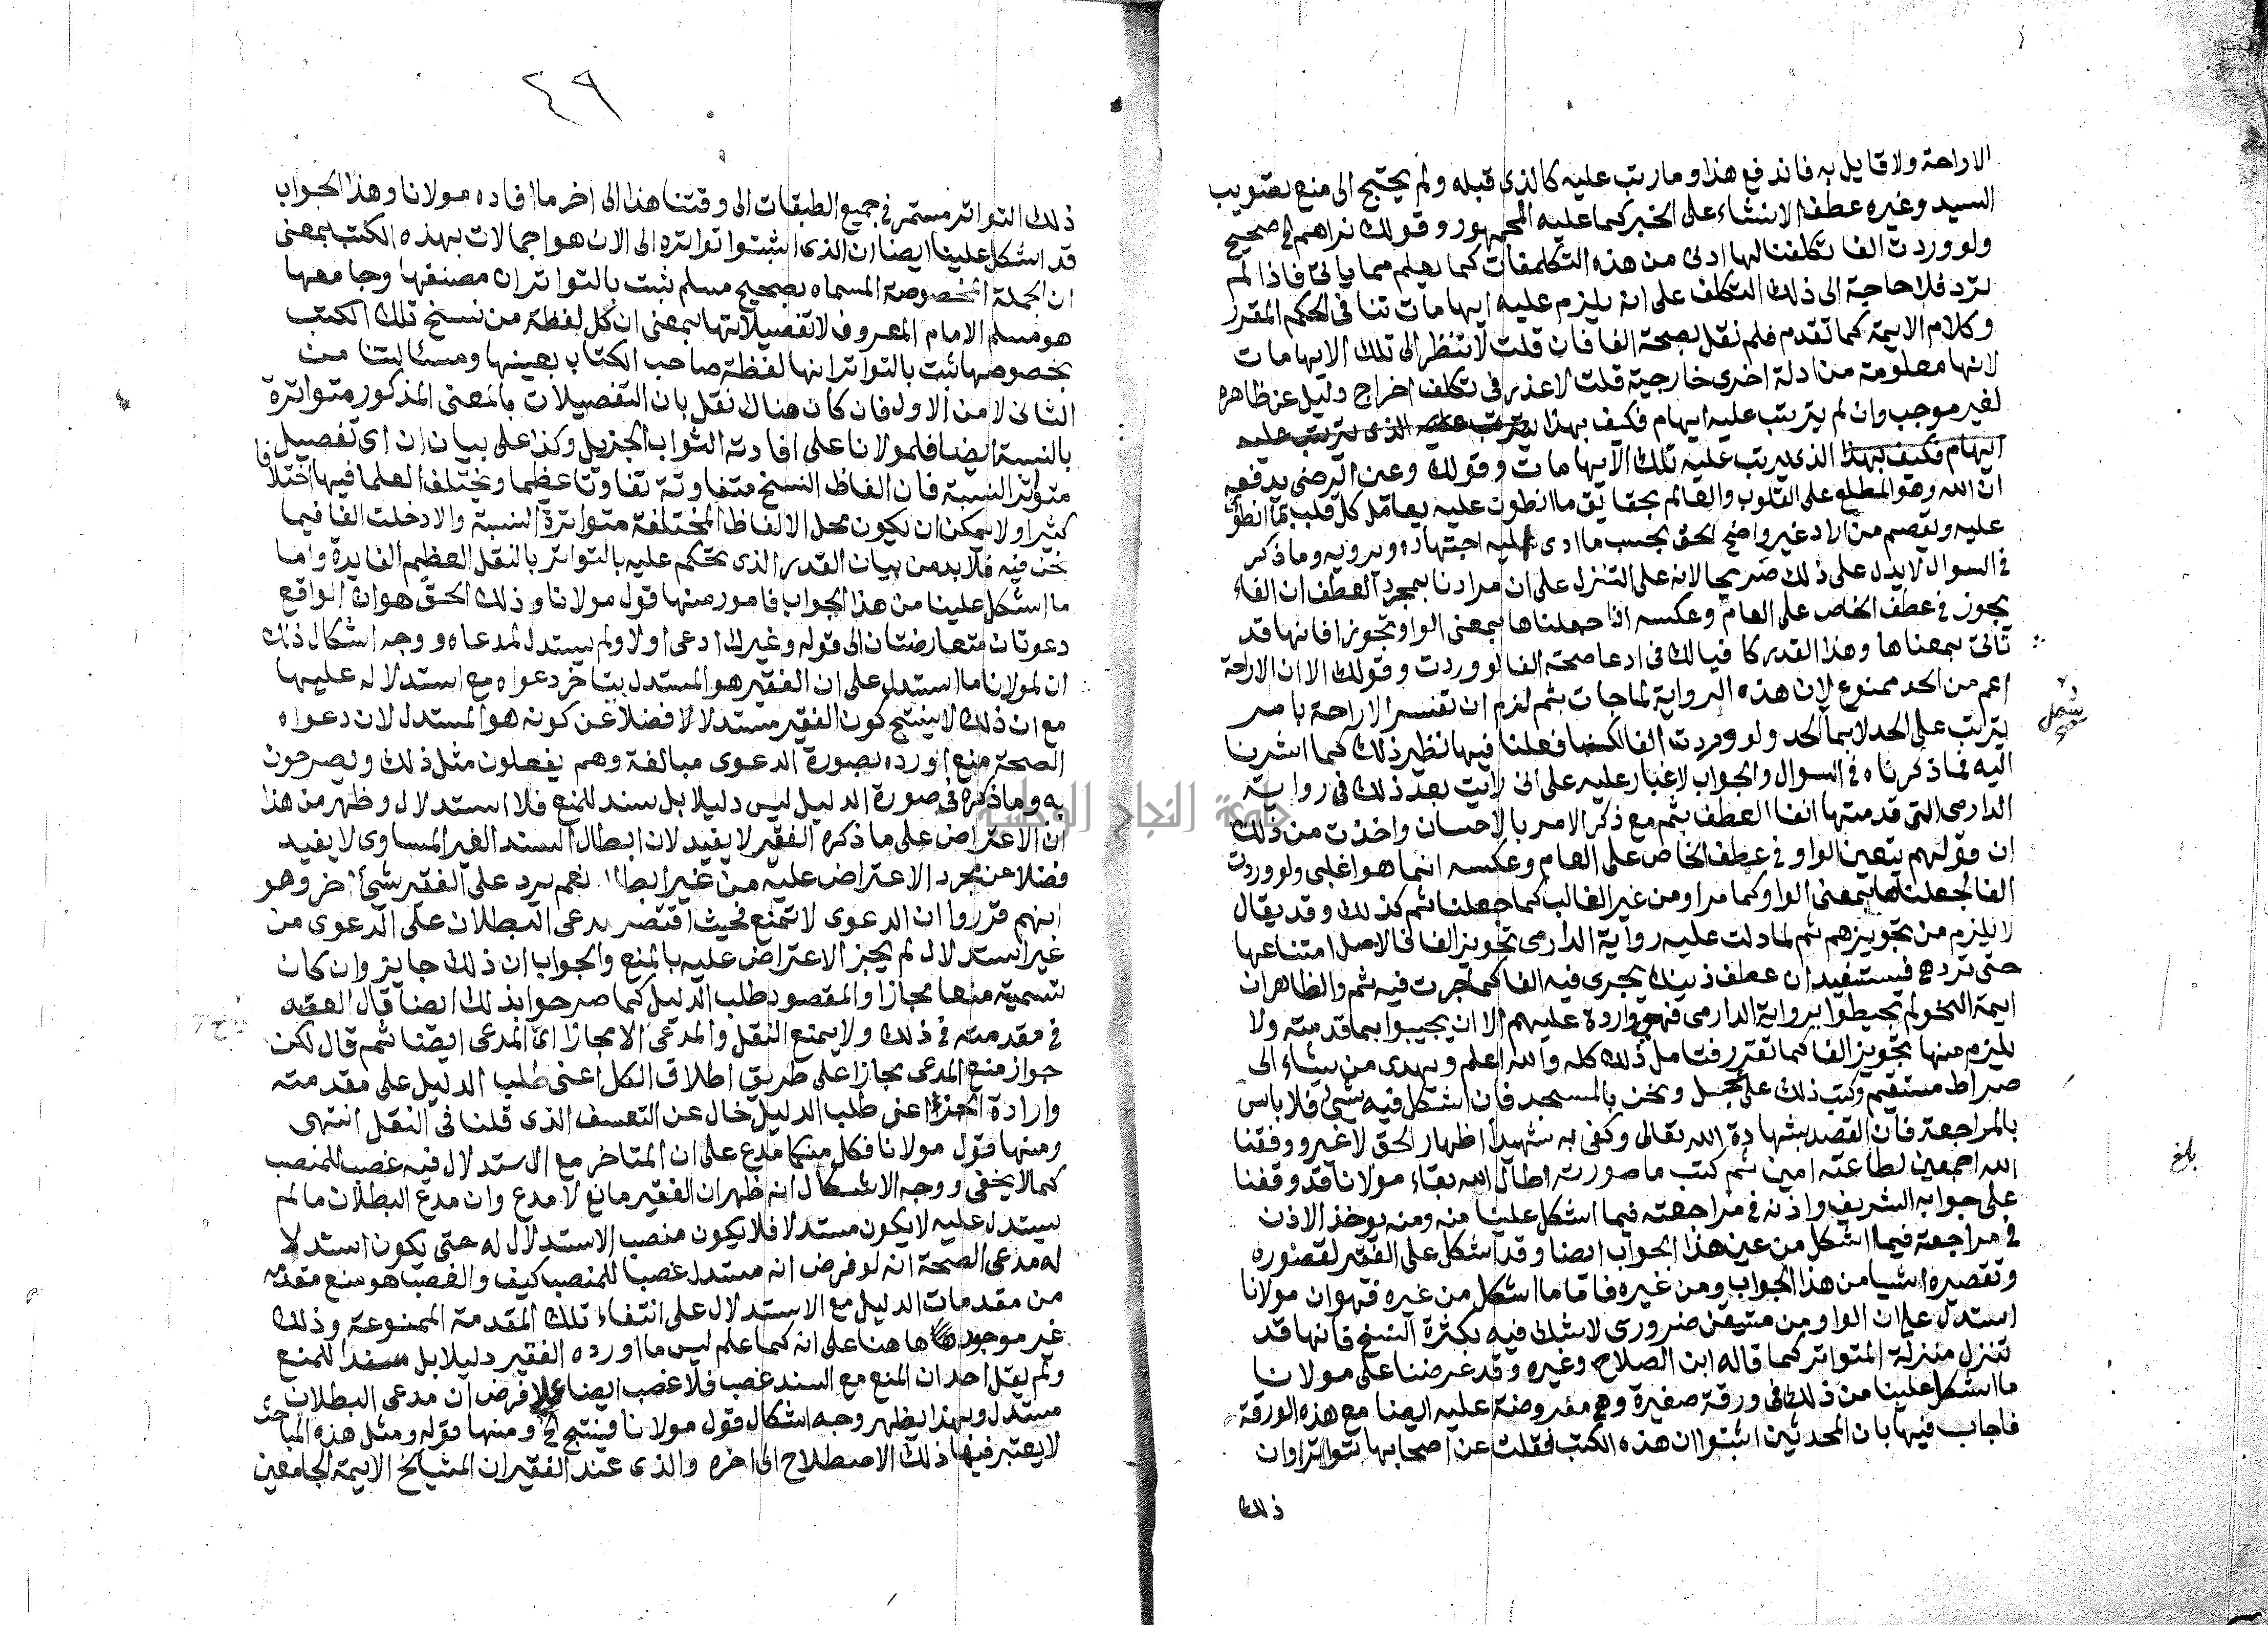 الاراحة ولا قايل به فاندفع هذا وما رتب عليه كالذي قبله ولم يحتج الى منع تصويب
السيد وغيره عطف الانشاء على الخبر كما عليه الجمهور وقولك نراهم في صحيح
ولو وردت الفا تكلفنا لها ادنى من هذه التكلفات كما يعلم مما ياتي فاذا لم
ترد فلا حاجة الى ذلك التكلف على انه يلزم عليه ايهامات تنافي الحكم المقرر
وكلام الايمة كما تقدم فلم نقل بصحة الفا فان قلت لا تنظر الى تلك الايهامات
لانها معلومة من ادلة اخرى خارجية قلت لا عذر في تكلف اخراج دليل عن ظاهره
لغير موجب وان لم يترتب عليه ايهام فكيف بهذا الذي يترتب عليه
ايهام فكيف بهذا الذي يترتب عليه تلك الايهامات وقولك وعين الرضى يدفعه
ان الله وهو المطلع على القلوب والعالم بحقايق ما انطوت عليه يعامل كل قلب بما انطوى
عليه ويقصم من الادغير واضح الحق بحسب ما ادى اليه اجتهاده ويرويه وما ذكر
في السوال لا يدل على ذلك صريحا لانه على التنزل على ان مرادنا بمجرد العطف ان الفاء
يجوز في عطف الخاص على العام وعكسه اذا جعلناها بمعنى الواو تجوزا فانها قد
تاتي بمعناها وهذا القدر كا فيالك في ادعا صحة الفا لو وردت وقولك الا ان الاراحة
اعم من الحد ممنوع لان هذه الرواية لما جات بثم لزم ان تفسر الاراحة بامر
يترتب على الحد لا بما الحد ولو وردت الفا لكنا فعلنا فيها نظير ذلك كما اشرنا
اليه فما ذكرناه في السوال والجواب لا غبار عليه على اني رايت بعد ذلك في رواية
الدارمي التي قدمتها انفا العطف بثم مع ذكر الامر بالاحسان واخذت من ذلك
ان قولهم يتعين الواو في عطف الخاص على العام وعكسه انما هو اغلبي ولو وردت
الفا لجعلناها بمعنى الواو كما مر او من غير الغالب كما جعلنا ثم كذلك وقد يقال
لا يلزم من تجويزهم ثم لما دلت عليه رواية الدارمي تجويز الفا فالاصل امتناعها
حتى ترد فيستفيد ان عطف ذينك يجري فيه الفا كما جرت فيه ثم والظاهر ان
ايمة النحو لم تحيطوا برواية الدارمي فهي واردة عليهم الا ان يجيبوا بما قدمته ولا
يلزم منها تجويز الفا كما تقرر فتامل ذلك كله والله اعلم ويهدي من يشاء الى
صراط مستقيم وكتب ذلك على عجل ونحن بالمسجد فان اشكل فيه شئ فلا باس
بالمراجعة فان القصد بشهادة الله تعالى وكفى به شهيدا اظهار الحق لا غير ووفقنا
الله اجمعين لطاعته امين ثم كتب ما صورته اطال الله بقاء مولانا قد وقفنا
على جوابه الشريف واذنه في مراجعته فيما اشكل علينا منه ومنه يوخذ الاذن
في مراجعة فيما اشكل من عين هذا الجواب ايضا وقد اشكل على الفقير لقصوره
وتقصره اشيا من هذا الجواب ومن غيره فاما ما اشكل من غيره فهو ان مولانا
استدل على ان الواو من متيقن ضروري لا شك فيه بكثرة النسخ فانها قد
تنزل منزلة المتواتر كما قاله ابن الصلاح وغيره وقد عرضنا على مولانا
ما اشكل علينا من ذلك في ورقة صغيرة وهي مفروضة عليه ايضا مع هذه الورقة
فاجاب فيها بان المحدثين اثبتوا ان هذه الكتب نقلت عن اصحابها تواترا وان
ذلك
يشمل
صح
بلغ
٤٩
ذلك التواتر مستمر في جميع الطبقات الى وقتنا هذا الى اخر ما افاده مولانا وهذا الجواب
قد اشكل علينا ايضا ان الذي اثبتوا تواتره الى الان هو اجمالات بهذه الكتب بمعنى
ان الجملة المخصوصة المسماه بصحيح مسلم ثبت بالتواتر ان مصنفها وجامعها
هو مسلم الامام المعروف لا تفصيلاتها بمعنى ان كل لفظة من نسخ تلك الكتب
بخصوصها ثبت بالتواتر انها لفظة صاحب الكتاب بعينها ومسئالتنا من
الثاني لا من الاول فان كان هناك نقل بان التفصيلات بالمعنى المذكور متواترة
بالنسبة ايضا فلمولانا على افادته الثواب الجزيل وكذا على بيان ان اي تفصيل
متواتر النسبة فان الفاظ النسخ متفاوتة تفاوتا عظيما ويختلف العلما فيها اختلافا
كثيرا ولا يمكن ان يكون محل الالفاظ المختلفة متواترة النسبة والا دخلت الفا فيما
نحن فيه فلا بد من بيان القدر الذي يحكم عليه بالتواتر بالنقل العظيم الفايدة واما
ما اشكل علينا من هذا الجواب فامور منها قول مولانا وذلك الحق هو ان الواقع
دعوتان متعارضتان الى قوله وغيرك ادعى اولا ولم يستدل لمدعاه ووجه اشكال ذلك
ان لمولانا ما استدل على ان الفقير هو المستدل بتاخر دعواه مع استدلاله عليها
مع ان ذلك لا ينتج كون الفقير مستدلا لا فضلا عن كونه هو المستدل لان دعواه
الصحة منع اورده بصورة الدعوى مبالغة وهم يفعلون مثل ذلك ويصرحون
به وما ذكره في صورة الدليل ليس دليلا بل سند للمنع فلا استدلال وظهر من هذا
ان الاعتراض على ما ذكره الفقير لا يفيد لان ابطال السند الغير المساوي لا يفيد
فضلا عن مجرد الاعتراض عليه من غير ابطال نعم يرد على الفقير شئ اخر وهو
انهم قرروا ان الدعوى لا تمنع فحيث اقتصر مدعى البطلان على الدعوى من
غير استدلال لم يجز الاعتراض عليه بالمنع والجواب ان ذلك جايز وان كان
تسمية منعا مجازا والمقصود طلب الدليل كما صرحوا بذلك ايضا قال العضد
في مقدمته في ذلك ولا يمنع النقل والمدعى الا مجازا اي المدعى ايضا ثم قال لكن
جواز منع المدعى مجازا على طريق اطلاق الكل اعنى طلب الدليل على مقدمته
وارادة الجزا اعنى طلب الدليل خال عن التعسف الذي قلنا في النقل انتهى
ومنها قول مولانا فكل منكما مدع على ان المتاخر مع الاستدلال فيه غصب للمنصب
كما لا يخفى ووجه الاشكال انه ظهر ان الفقير مانع لا مدع وان مدع البطلان ما لم
يستدل عليه لا يكون مستدلا فلا يكون منصب الاستدلال له حتى يكون استدلا
له مدعى الصحة انه لو فرض انه مستدل غصبا للمنصب كيف والغصب هو منع مقدمة
من مقدمات الدليل مع الاستدلال على انتفاء تلك المقدمة الممنوعة وذلك
غير موجود هاهنا على انه كما علم ليس ما اورده الفقير دليلا بل سندا للمنع
ولم يقل احد ان المنع مع السند غصب فلا غصب ايضا على فرض ان مدعى البطلان
مستدل وبهذا يظهر وجه اشكال قول مولانا فينتج الخ ومنها قوله ومثل هذه المباحث
لا يعتبر فيها ذلك الاصطلاح الى اخره والذي عند الفقير ان المشايخ الايمة الجامعين
جامعة النجاح الوطنية